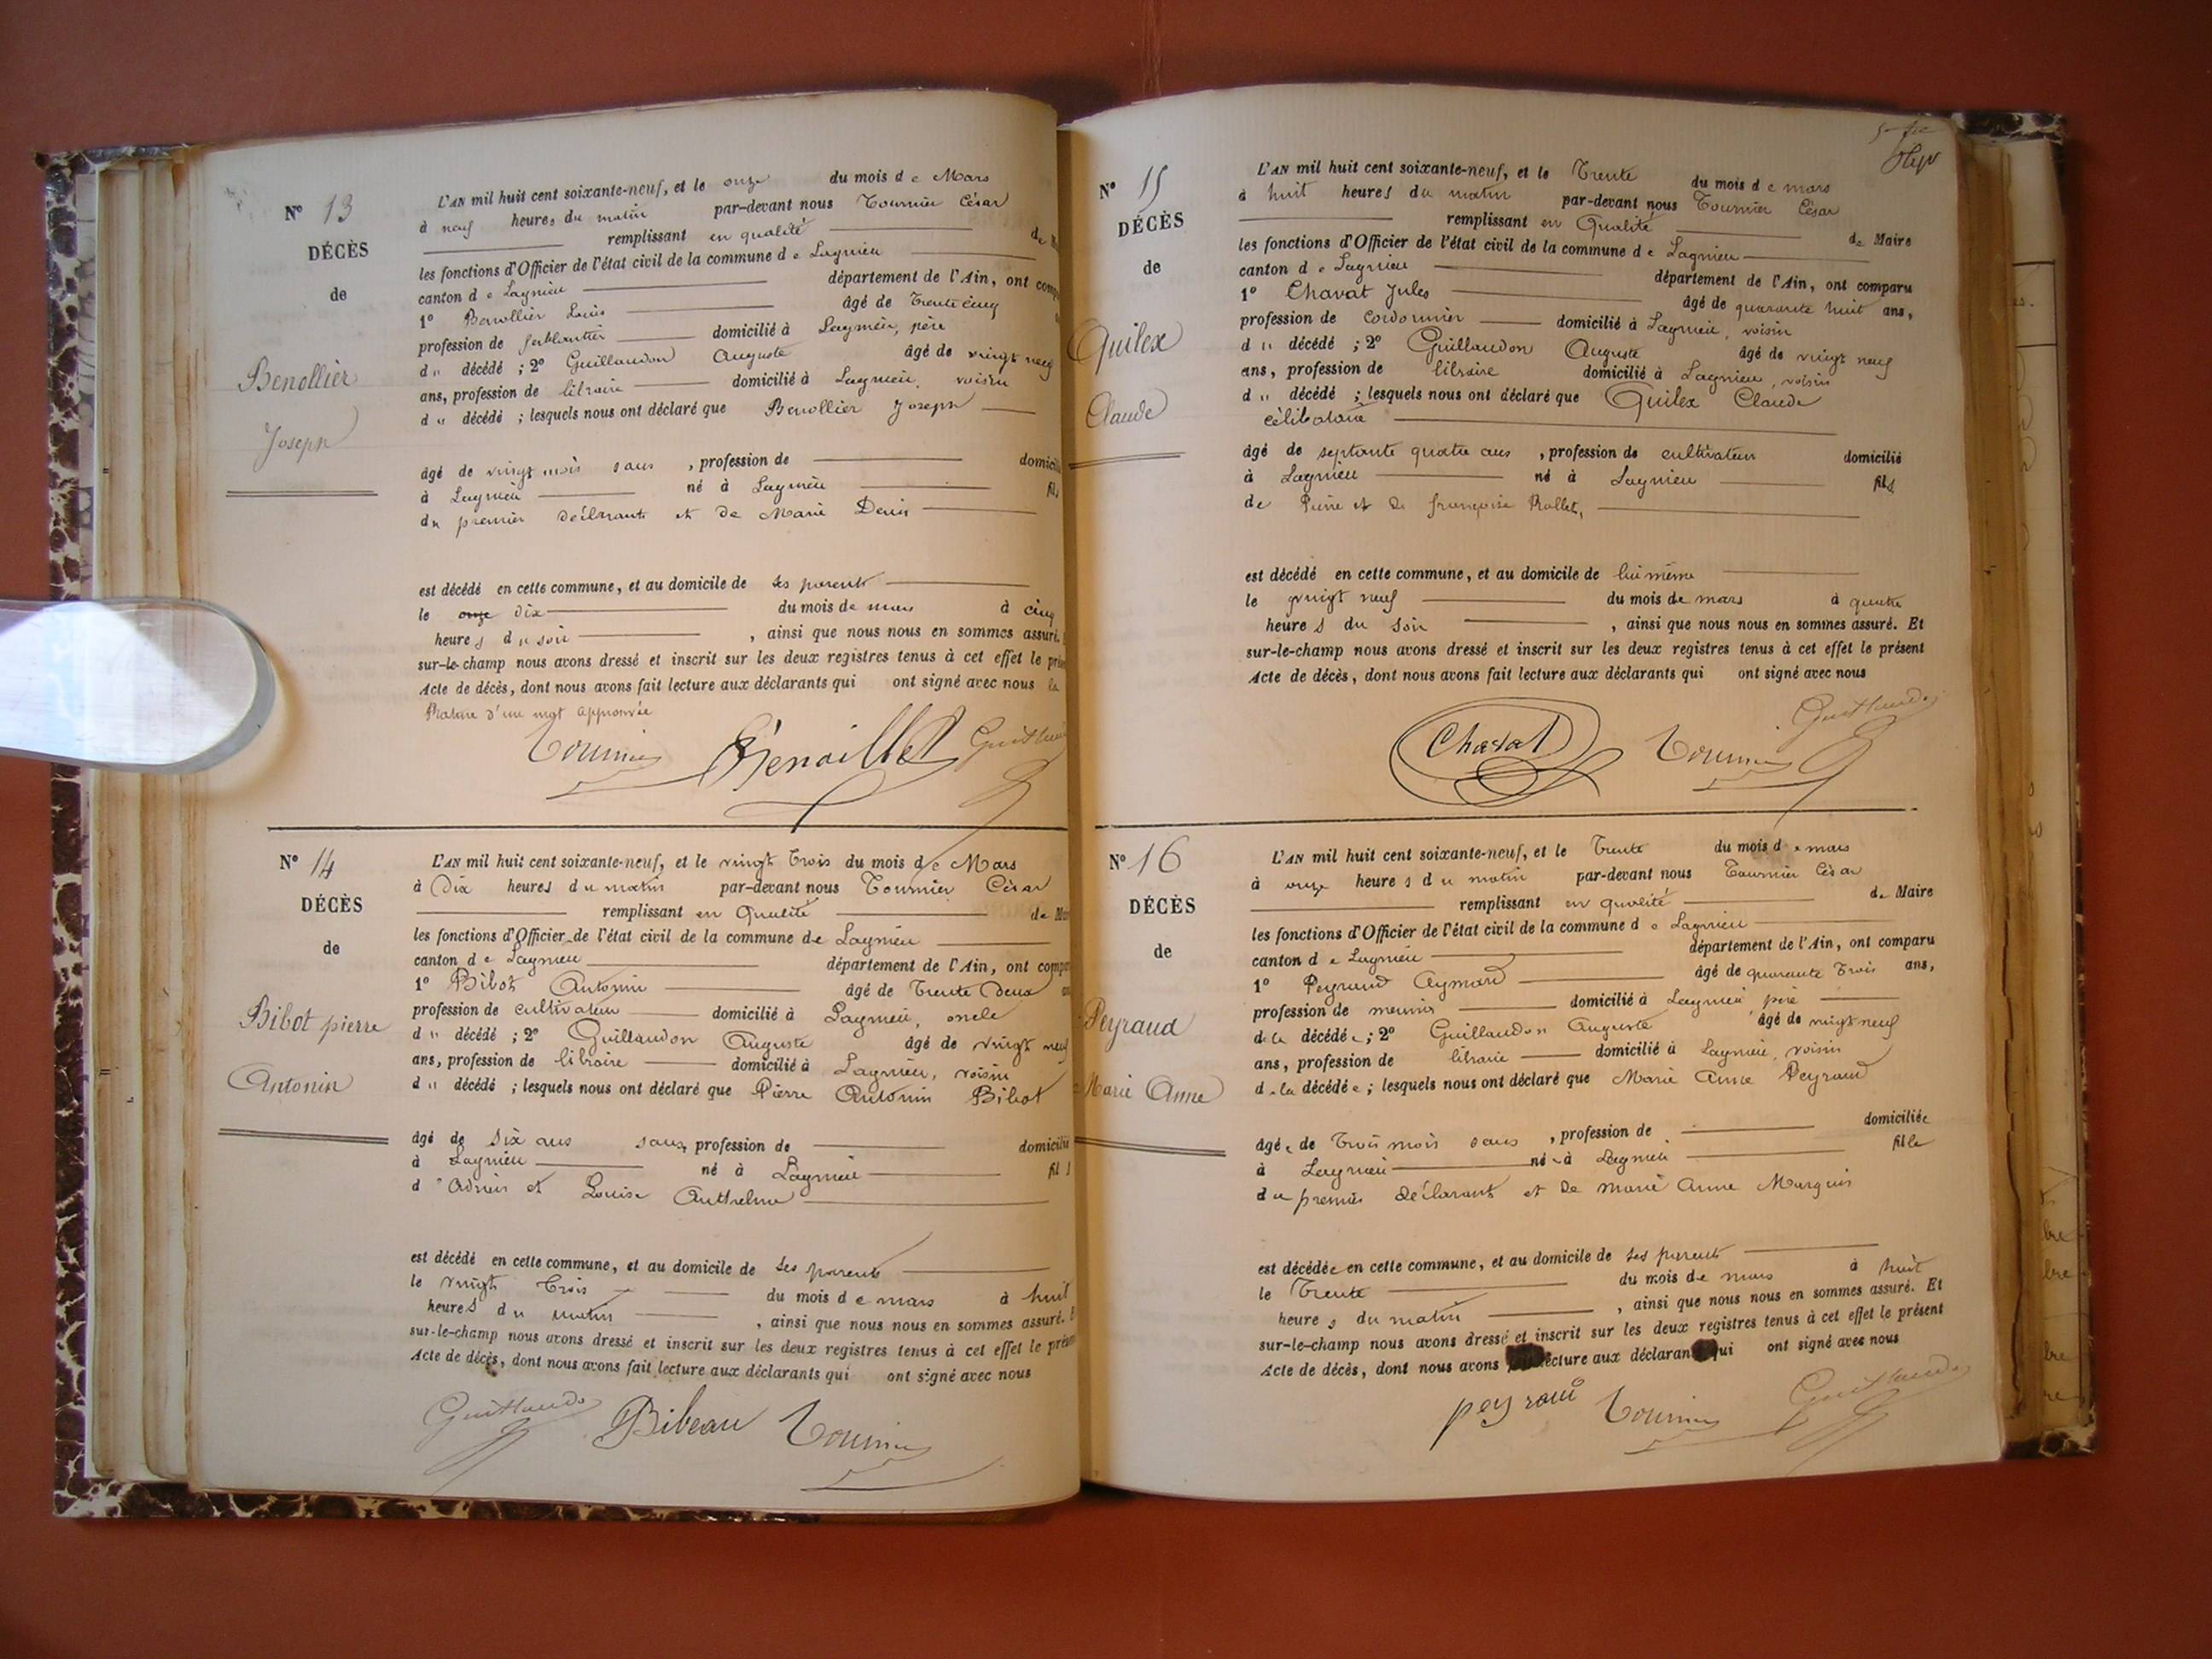 N° 13
DÉCÈS
de
Benollier
Joseph
L'AN mil huit cent soixante-neuf, et le onze du mois de Mars
à neuf heures du matin par-devant nous Tournier César
remplissant en qualité de
les fonctions d'Officier de l'état civil de la commune de Lagnieu
canton de Lagnieu département de l'Ain, ont
1° Benollier Louis âgé de Trente cinq
profession de ferblantier domicilié à Lagnieu, père
du décédé ; 2° Guillaudon Auguste âgé de vingt neuf
ans, profession de libraire domicilié à Lagnieu, voisin
du décédé ; lesquels nous ont déclaré que Benollier Joseph
âgé de vingt mois sans , profession de
à Lagnieu né à Lagnieu fils
du premier déclarant et de Marie Denis
est décédé en cette commune, et au domicile de ses parents
le onze dix du mois de mars à cinq
heures du soir , ainsi que nous nous en sommes assuré.
sur-le-champ nous avons dressé et inscrit sur les deux registres tenus à cet effet le
Acte de décès, dont nous avons fait lecture aux déclarants qui ont signé avec nous la
Rature d'un mot approuvée
Tournier Benoillet
N° 14
DÉCÈS
de
Bibot pierre
Antonin
L'AN mil huit cent soixante-neuf, et le vingt Trois du mois de Mars
à Dix heures du matin par-devant nous Tournier César
remplissant en Qualité de
les fonctions d'Officier de l'état civil de la commune de Lagnieu
canton de Lagnieu département de l'Ain, ont
1° Bibot Antonin âgé de Trente Deux
profession de cultivateur domicilié à Lagnieu, oncle
du décédé ; 2° Guillaudon Auguste âgé de vingt neuf
ans, profession de libraire domicilié à Lagnieu, voisin
du décédé ; lesquels nous ont déclaré que Pierre Antonin Bibot
âgé de Six ans sans, profession de domicilié
à Lagnieu né à Lagnieu fils
d' et Louise Anthelme
est décédé en cette commune, et au domicile de ses parents
le vingt Trois du mois de mars à huit
heures du matin , ainsi que nous nous en sommes assuré.
sur-le-champ nous avons dressé et inscrit sur les deux registres tenus à cet effet le
Acte de décès, dont nous avons fait lecture aux déclarants qui ont signé avec nous
Bibeau Tournier
N° 15
DÉCÈS
de
Quilex
Claude
L'AN mil huit cent soixante-neuf, et le Trente du mois de mars
à huit heures du matin par-devant nous Tournier César
remplissant en Qualité de Maire
les fonctions d'Officier de l'état civil de la commune de Lagnieu
canton de Lagnieu département de l'Ain, ont comparu
1° Chavat Jules âgé de quarante huit ans,
profession de cordonnier domicilié à Lagnieu, voisin
du décédé ; 2° Guillaudon Auguste âgé de vingt neuf
ans, profession de libraire domicilié à Lagnieu, voisin
du décédé ; lesquels nous ont déclaré que Quilex Claude
célibataire
âgé de septante quatre ans , profession de cultivateur domicilié
à Lagnieu né à Lagnieu fils
de Pierre et de françoise Rollet,
est décédé en cette commune, et au domicile de lui même
le vingt neuf du mois de mars à quatre
heures du soir , ainsi que nous nous en sommes assuré. Et
sur-le-champ nous avons dressé et inscrit sur les deux registres tenus à cet effet le présent
Acte de décès, dont nous avons fait lecture aux déclarants qui ont signé avec nous
Chavat Tournier
N° 16
DÉCÈS
de
Peyraud
Marie Anne
L'AN mil huit cent soixante-neuf, et le Trente du mois de mars
à onze heures du matin par-devant nous Tournier César
remplissant en qualité de Maire
les fonctions d'Officier de l'état civil de la commune de Lagnieu
canton de Lagnieu département de l'Ain, ont comparu
1° Peyraud Aymard âgé de quarante Trois ans,
profession de meunier domicilié à Lagnieu père
de la décédée ; 2° Guillaudon Auguste âgé de vingt neuf
ans, profession de libraire domicilié à Lagnieu, voisin
de la décédée ; lesquels nous ont déclaré que Marie Anne Peyraud
âgée de Trois mois sans , profession de domiciliée
à Lagnieu née à Lagnieu fille
du premier déclarant et de Marie Anne Marguis
est décédée en cette commune, et au domicile de ses parents
le Trente du mois de mars à huit
heures du matin , ainsi que nous nous en sommes assuré. Et
sur-le-champ nous avons dressé et inscrit sur les deux registres tenus à cet effet le présent
Acte de décès, dont nous avons lecture aux déclarants qui ont signé avec nous
peyraud Tournier